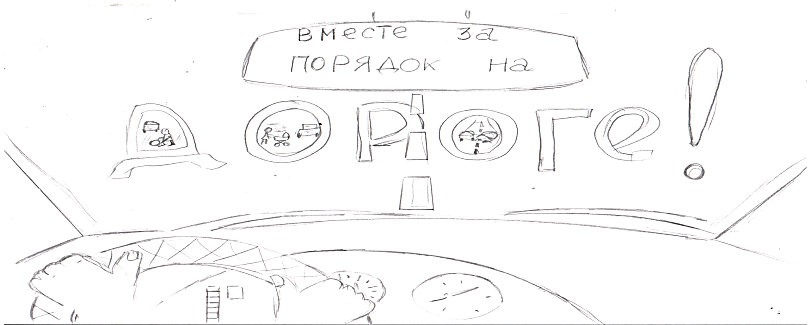 вместе за
ПОРЯДОК на
ДОРоге!